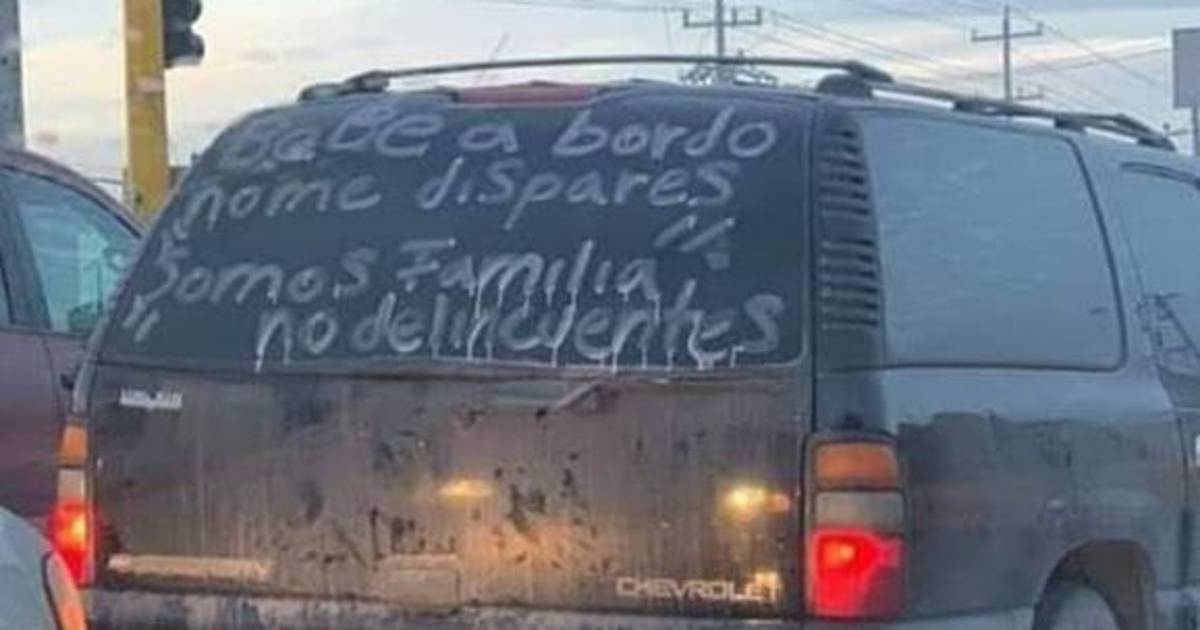 BaBE a bordo
nome dispares
"
Somos Familia
" no delincuentes
CHEVROLET